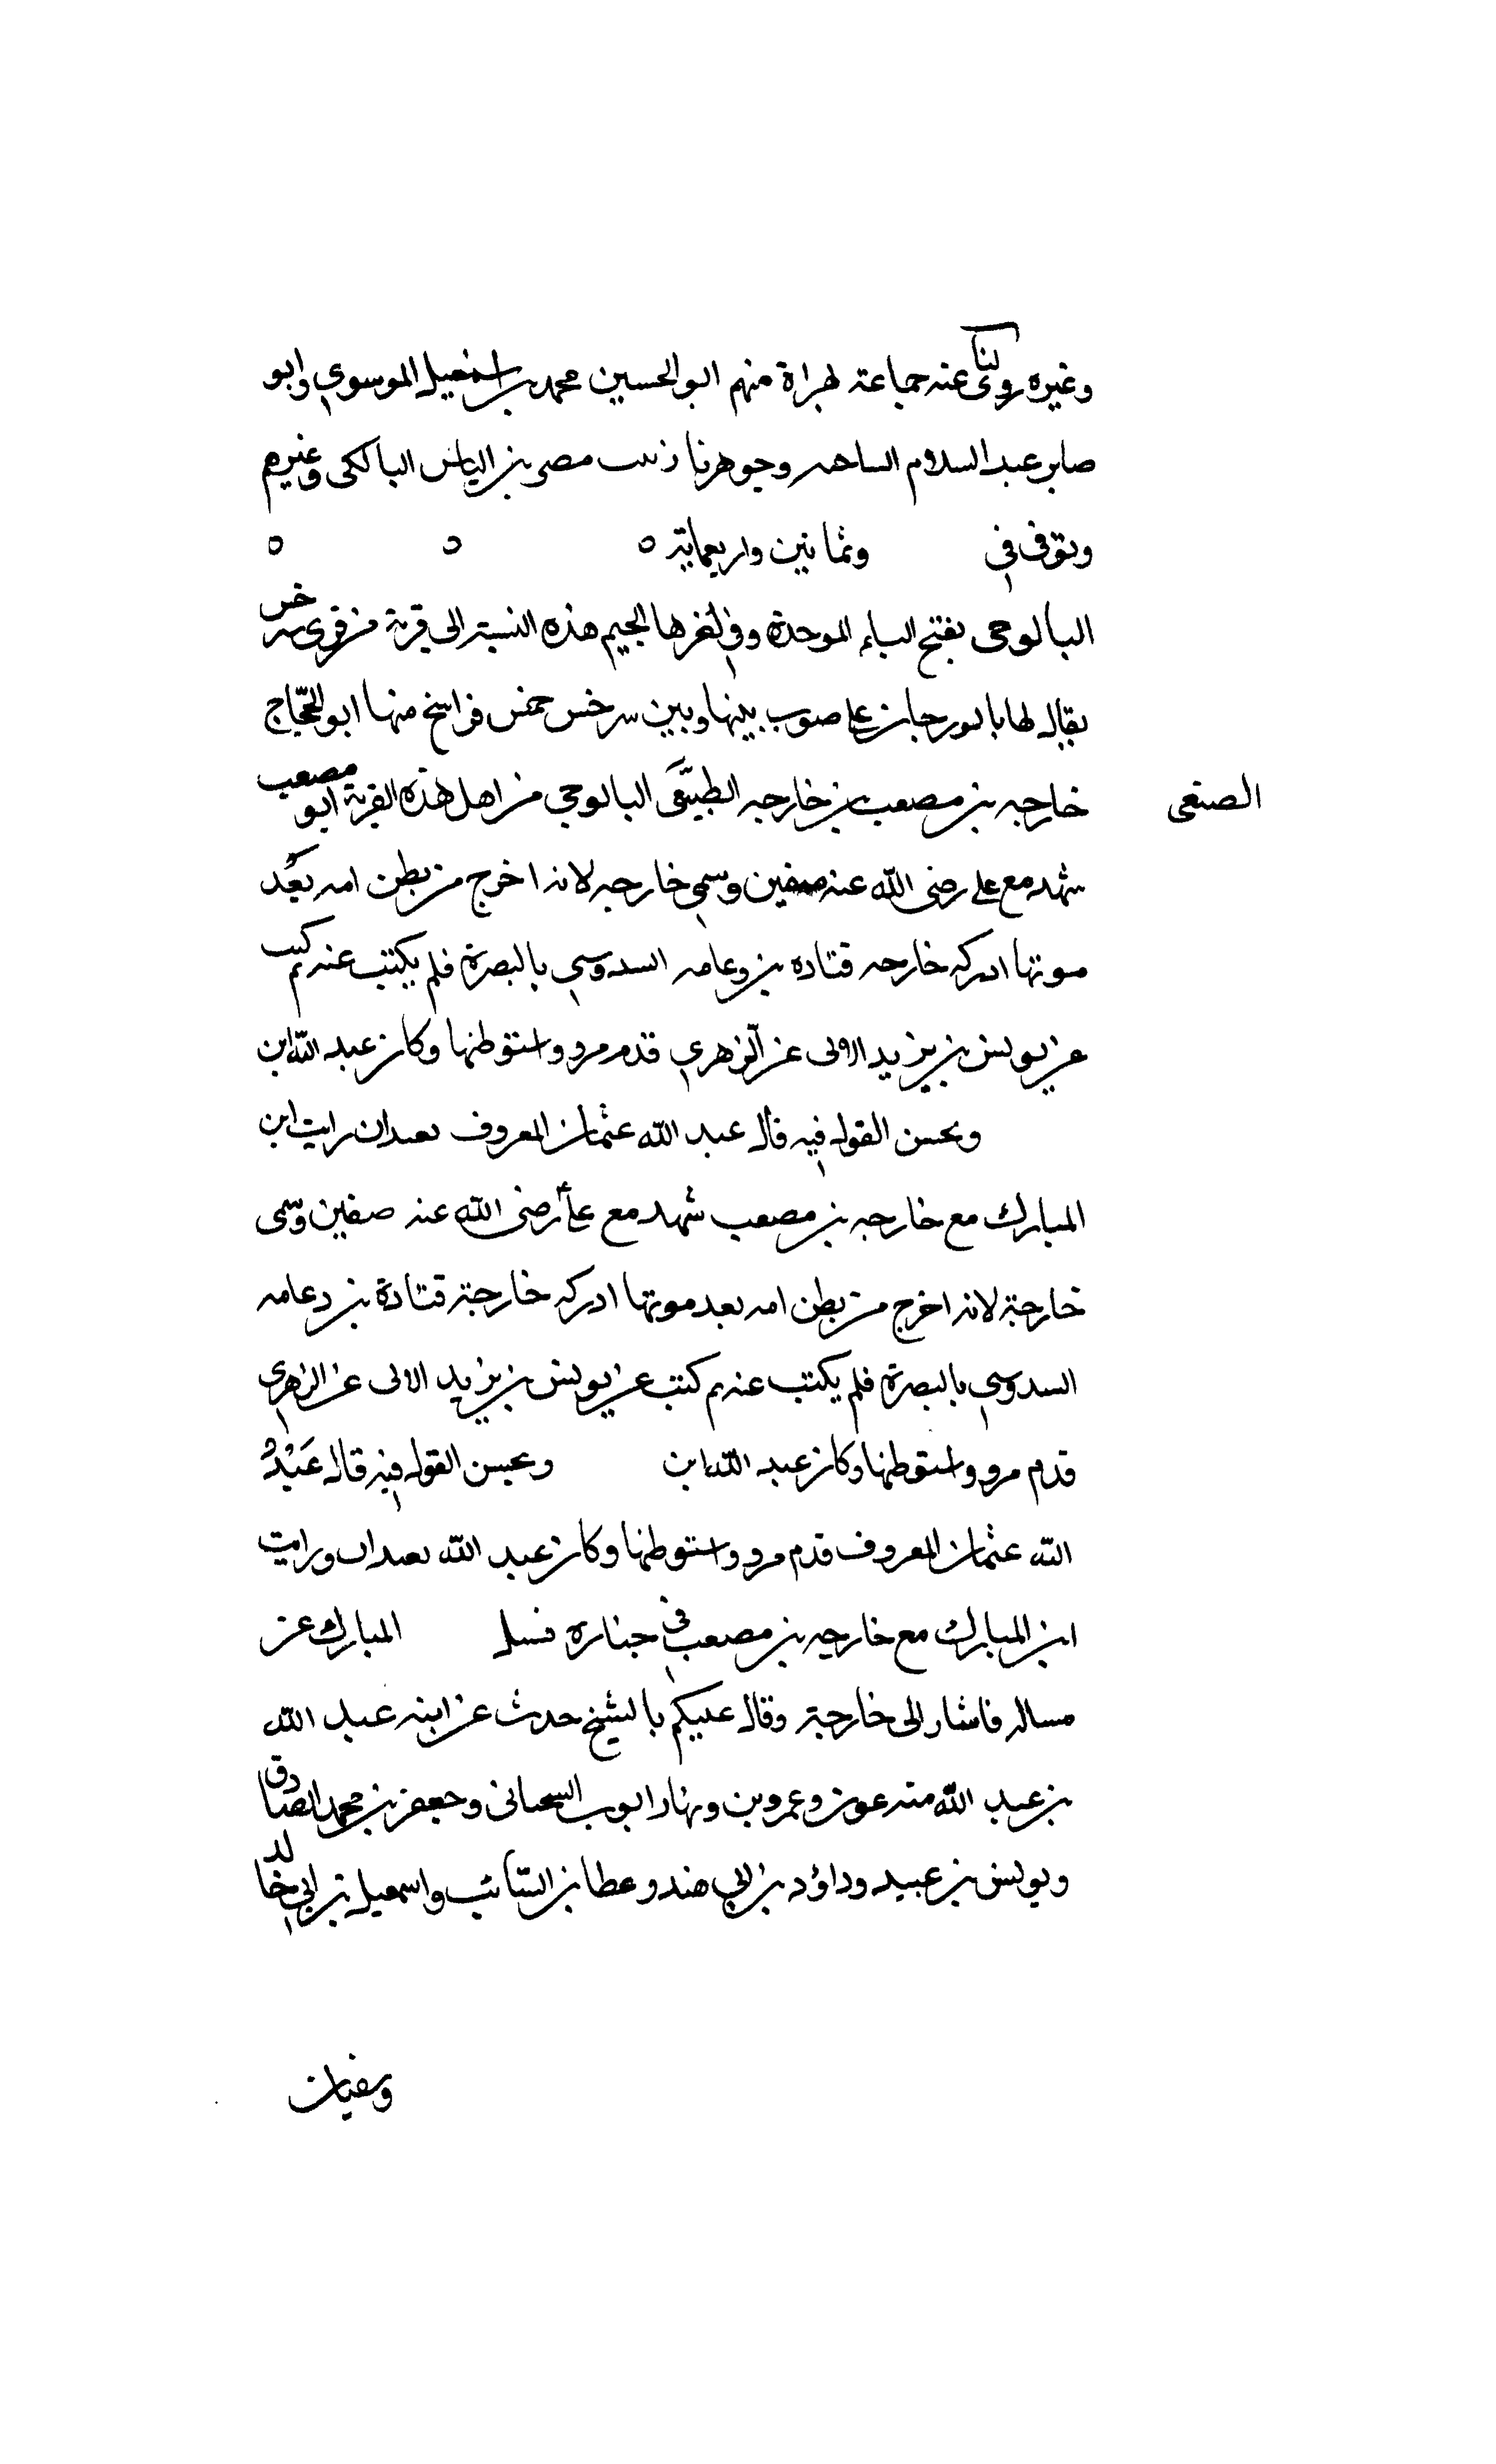 وغيره روى لنا عنه جماعة بهراة منهم ابو الحسين محمد بن اسمعيل الموسوي وابو
صابر عبد السلام وجوهرناز بنت مضر بن الياس البالكى وغيرهم
وتوفى في وثمانين واربعماية ه ه ه
البالوجى بفتح الباء الموحدة وفي اخرها الجيم هذه النسبة الى قرية من قرى سرخس
يقال لها بالوز جان على صوب بينها وبين سرخس خمس فراسخ منها ابو الحجاج
خارجه بن مصعب بن خارجه البالوجى من اهل هذه القرية ابو مصعب
الصبغى
شهد مع على رضى الله عنه صفين وسمي خارجه لانه اخرج من بطن امه بعد
موتها ادرك خارجه قتاده بن دعامه السدوسي بالبصرة فلم يكتب عنه ثم كتب
عن يونس بن يزيد الالى عن الزهري قدم مرو واستوطنها وكان عبد الله ابن
ويحسن القول فيه قال عبد الله عثمان المعروف بعبدان رايت ابن
المبارك مع خارجه بن مصعب شهد مع على رضى الله عنه صفين وسمى
خارجة لانه اخرج من بطن امه بعد موتها ادرك خارجة قتادة بن دعامه
السدوسي بالبصرة فلم يكتب عنه ثم كتب عن يونس بن يزيد الالى عن الزهري
قدم مرو واستوطنها وكان عبد الله ابن ويحسن القول فيه قال عَبْدُ
الله عثمان المعروف قدم مرو واستوطنها وكان عبد الله بعبدان ورايت
ابن المبارك مع خارجه بن مصعب في جنازة فسل المبارك عن
مساله فاشار الى خارجة وقال عليكم بالشيخ حدث عن ابنه عبد الله
بن عبد الله عون وعمرو بن ايوب وجعفر بن محمد الصادق
ويونس بن عبيد وداؤد بن ابي هند وعطا بن السائب واسمعيل بن ابي خالد
وسفيان